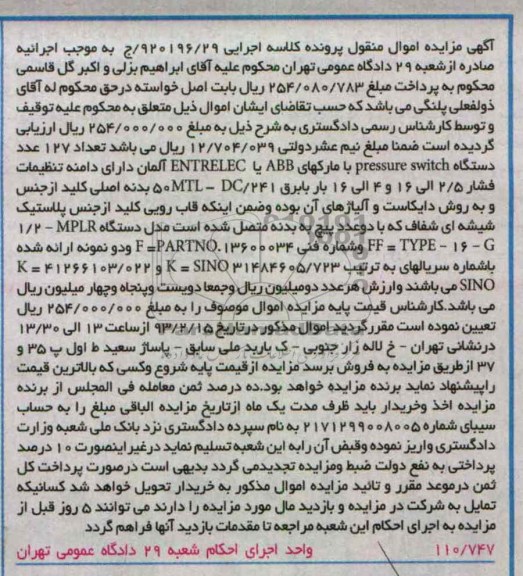 آگهی مزایده اموال منقول پرونده کلاسه اجرایی ۹۲۰۱۹۶/۲۹/ج به موجب اجرائیه
صادره ازشعبه ۲۹ دادگاه عمومی تهران محکوم علیه آقای ابراهیم بزلی و اکبر گل قاسمی
محکوم به پرداخت مبلغ ۲۵۴/۰۸۰/۷۸۳ ریال بابت اصل خواسته درحق محکوم له آقای
ذولفعلی پلنگی می باشد که حسب تقاضای ایشان اموال ذیل متعلق به محکوم علیه توقیف
و توسط کارشناس رسمی دادگستری به شرح ذیل به مبلغ ۲۵۴/۰۰۰/۰۰۰ ریال ارزیابی
گردیده است ضمنا مبلغ نیم عشردولتی ۱۲/۷۰۴/۰۳۹ ریال می باشد تعداد ۱۲۷ عدد
دستگاه pressure switch با مارکهای ABB یا ENTRELEC آلمان دارای دامنه تنظیمات
فشار ۲/۵ الی ۱۶ و ۴ الی ۱۶ بار بابرق ۵۰MTL – DC/۲۴۱ بدنه اصلی کلید ازجنس
و به روش دایکاست و آلیاژهای آن بوده وضمن اینکه قاب رویی کلید ازجنس پلاستیک
شیشه ای شفاف که با دوعدد پیچ به بدنه متصل شده است مدل دستگاه ۱/۲ – MPLR
FF = TYPE – ۱۶ – G وشماره فنی F =PARTNO. ۱۳۶۰۰۰۳۴ ودو نمونه ارائه شده
باشماره سریالهای به ترتیب K = SINO ۳۱۴۸۴۶۰۵/۷۲۳ و K = ۴۱۲۶۶۱۰۳/۰۲۲
SINO می باشند وارزش هرعدد دومیلیون ریال وجمعا دویست وپنجاه وچهار میلیون ریال
می باشد.کارشناس قیمت پایه مزایده اموال موصوف را به مبلغ ۲۵۴/۰۰۰/۰۰۰ ریال
تعیین نموده است مقررگردید اموال مذکور درتاریخ ۹۳/۲/۱۵ ازساعت ۱۳ الی ۱۳/۳۰
درنشانی تهران – خ لاله زار جنوبی – ک باربد ملی سابق – پاساژ سعید ط اول پ ۳۵ و
۳۷ ازطریق مزایده به فروش برسد مزایده ازقیمت پایه شروع وکسی که بالاترین قیمت
راپیشنهاد نماید برنده مزایده خواهد بود.ده درصد ثمن معامله فی المجلس از برنده
مزایده اخذ وخریدار باید ظرف مدت یک ماه ازتاریخ مزایده الباقی مبلغ را به حساب
سیبای شماره ۲۱۷۱۲۹۹۰۰۸۰۰۵ به نام سپرده دادگستری نزد بانک ملی شعبه وزارت
دادگستری واریز نموده وقبض آن رابه این شعبه تسلیم نماید درغیراینصورت ۱۰ درصد
پرداختی به نفع دولت ضبط ومزایده تجدیدمی گردد بدیهی است درصورت پرداخت کل
ثمن درموعد مقرر و تائید مزایده اموال مذکور به خریدار تحویل خواهد شد کسانیکه
تمایل به شرکت در مزایده و بازدید مال مورد مزایده را دارند می توانند ۵ روز قبل از
مزایده به اجرای احکام این شعبه مراجعه تا مقدمات بازدید آنها فراهم گردد
۱۱۰/۷۴۷ واحد اجرای احکام شعبه ۲۹ دادگاه عمومی تهران